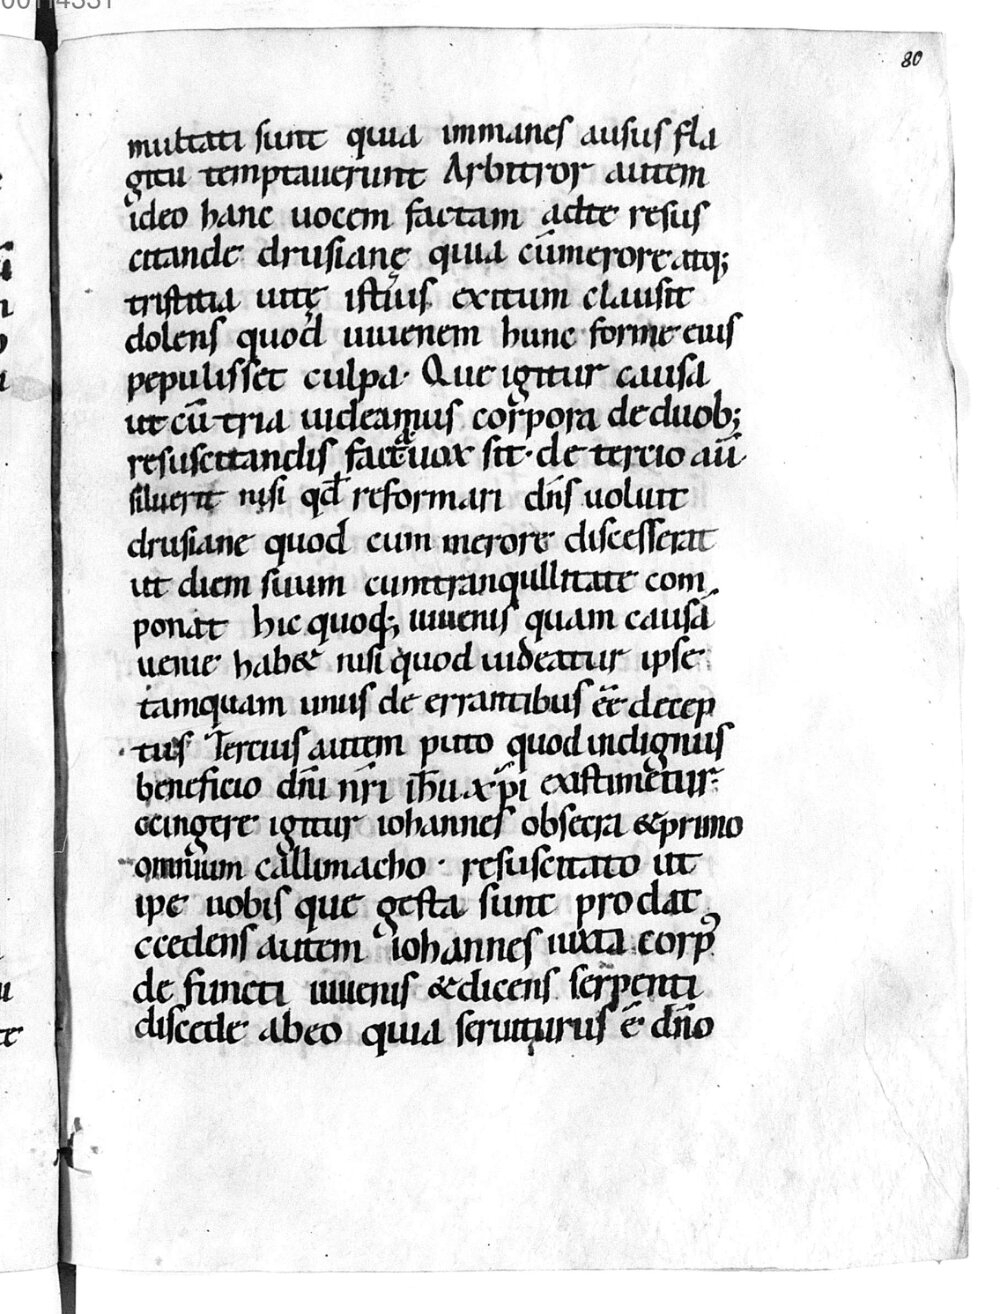 80
multati sunt quia immanes ausus fla
gicii temptauerunt Arbitror autem
ideo hanc uocem factam adte resus
citande drusianę quia cūmerore atq;
tristitia uitę istius exitum clausit
dolens quod iuuenem hunc forme eius
pepulisset culpa· Que igitur causa
ut cū tria uideamus corpora de duob;
resuscitandis facta uox sit· de tercio aū
siluerit nisi qđ reformari dn̄s uoluit
drusiane quod cum merore discesserat
ut diem suum cumtranqullitate com
ponat hic quoq; iuuenis quam causā
uenie hab& nisi quod uideatur ipse
tamquam unus de errantibus ēē decep
tus Tercius autem puto quod indignus
beneficio dn̄i nr̄i ih̄u xp̄i existimetur
ccingere igitur iohannes obsecra & primo
omnium callimacho· resuscitato ut
ipe uobis que gesta sunt prodat
ccedens autem iohannes iuxta corp̄
de functi iuuenis & dicens serpenti
discede abeo quia seruiturus ē dn̄o